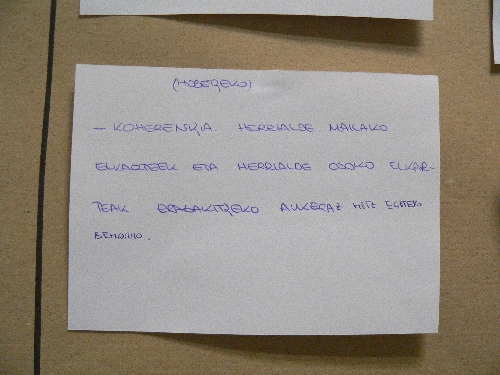 (HOBETZEKO)
- KOHERENTZIA. HERRIALDE MAILAKO
ELKARTEEK ETA HERRIALDE OSOKO ELKAR-
TEAK ERABAKITZEKO AUKERAZ HITZ EGITEKO